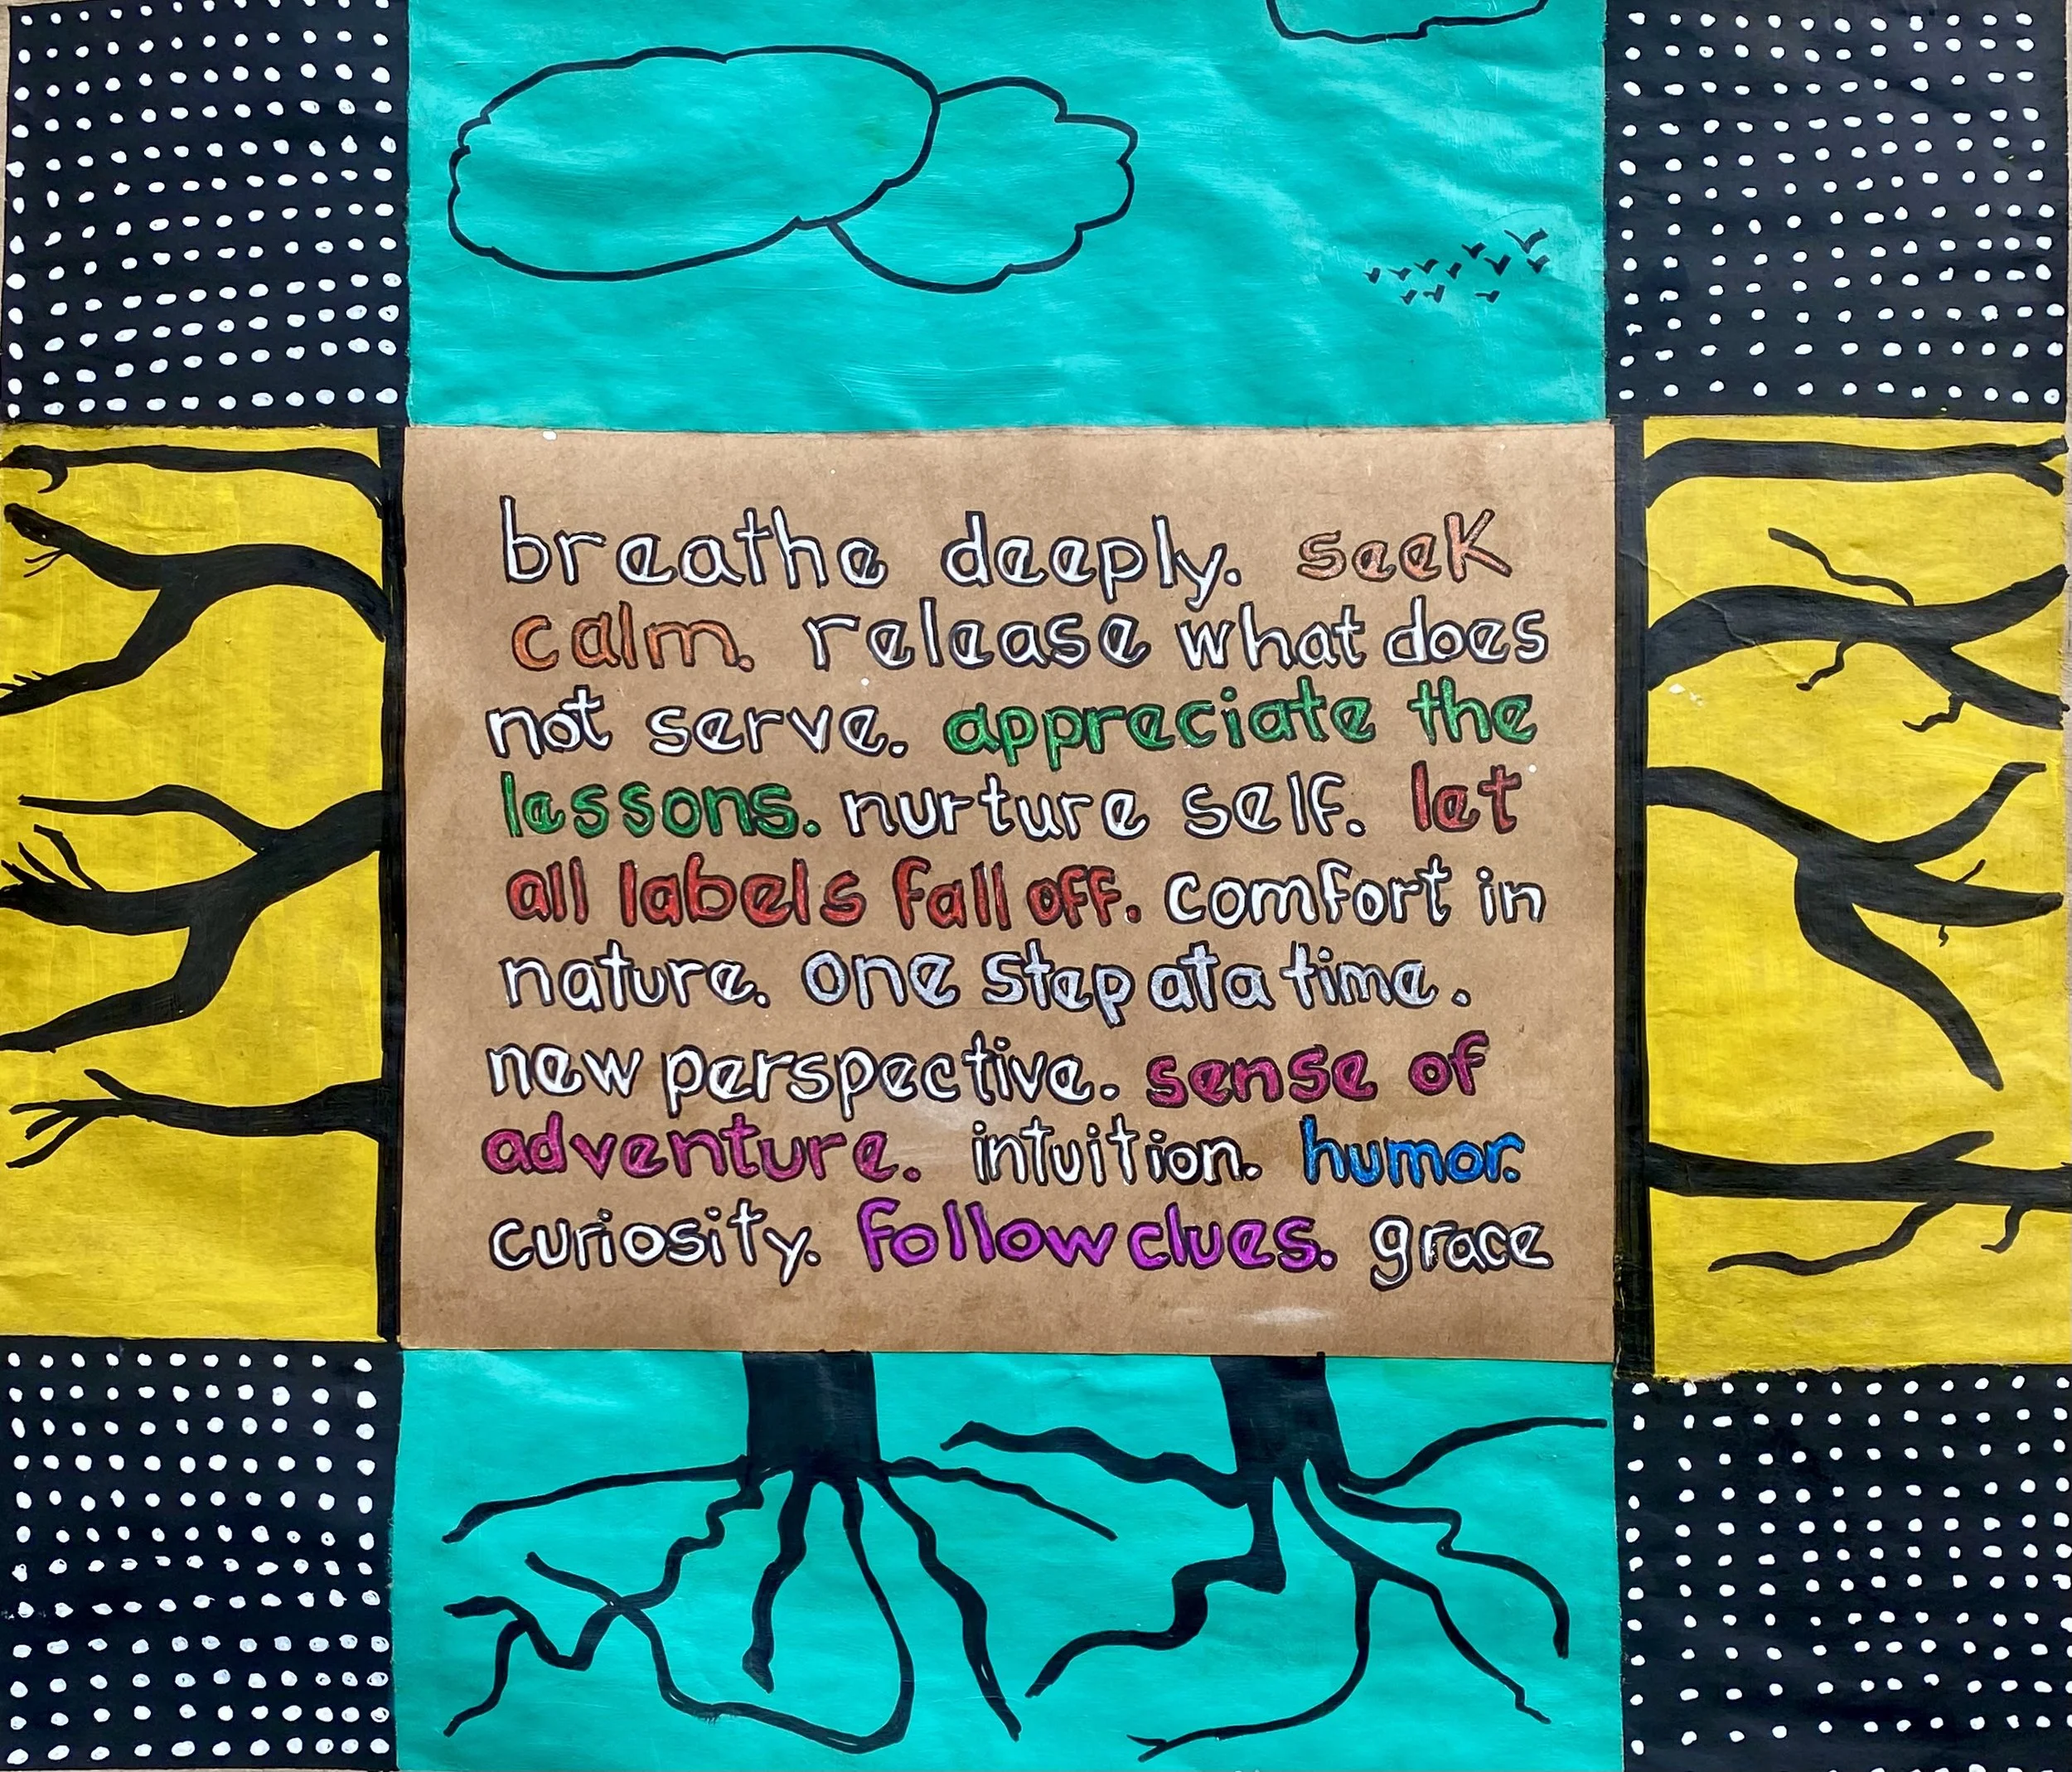 breathe deeply. seek
calm. release what does
not serve. appreciate the
lessons. nurture self. let
all labels fall off. comfort in
nature. one step at a time.
new perspective. sense of
adventure. intuition. humor.
curiosity. follow clues. grace